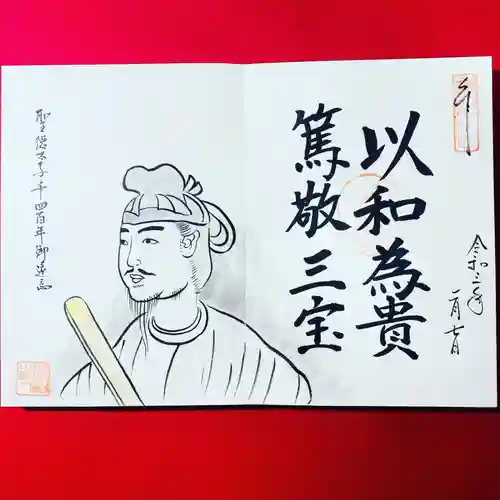 奉拝
以和為貴
篤敬三宝
令和三年
二月七日
聖徳太子千四百年御遠忌